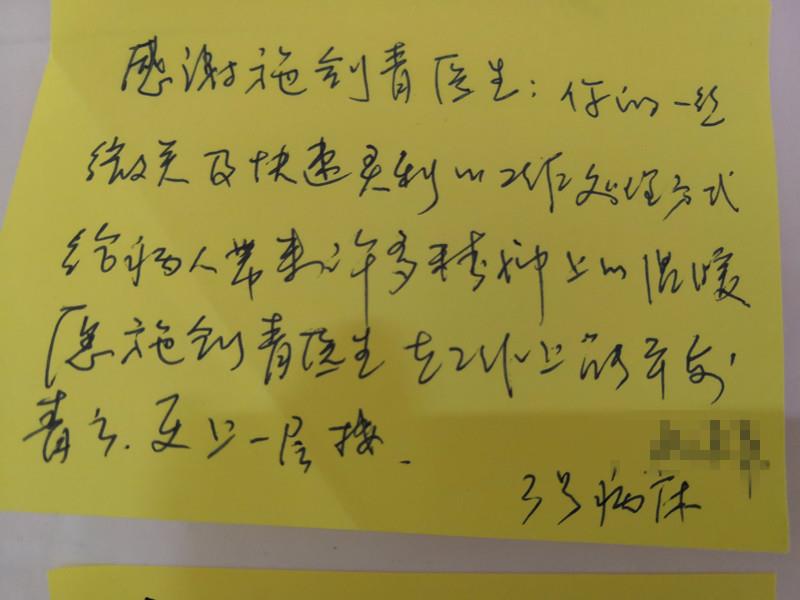 感谢施剑青医生：你的一丝
微笑及快速灵利的工作处理方式
给病人带来许多精神上的温暖
愿施剑青医生在工作上能平步
青云.更上一层楼.
3号病床